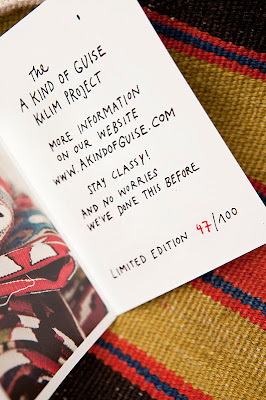 The
A KIND OF GUISE
KALIM PROJECT
MORE INFORMATION
ON OUR WEBSITE
WWW.AKINDOFGUISE.COM
STAY CLASSY!
AND NO WORRIES
WE'VE DONE THIS BEFORE
LIMITED EDITION 47/100